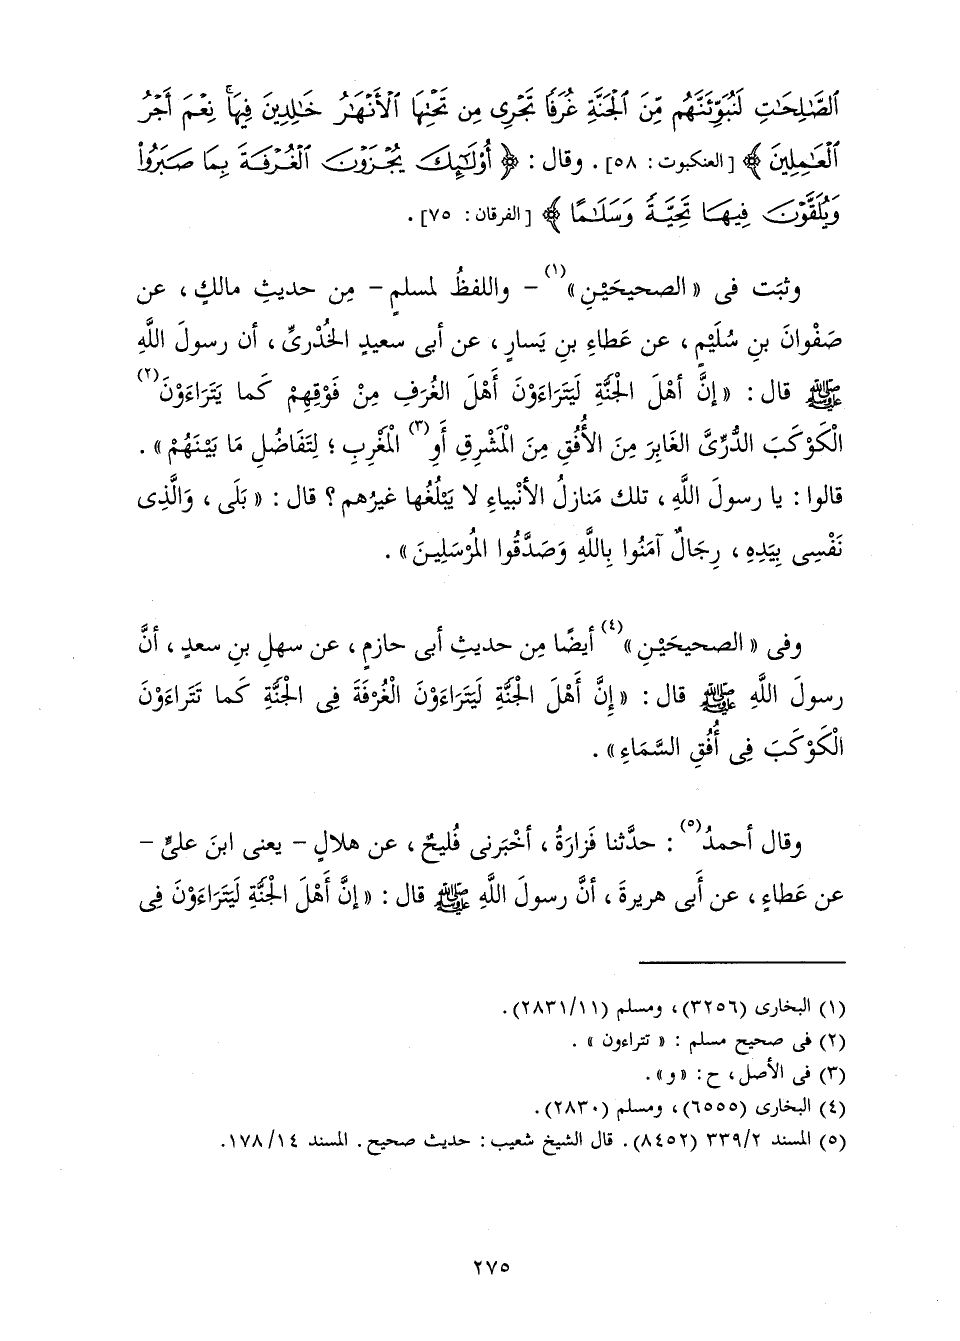 ٱلصَّٰلِحَٰتِ لَنُبَوِّئَنَّهُم مِّنَ ٱلْجَنَّةِ غُرَفًا تَجْرِى مِن تَحْتِهَا ٱلْأَنْهَٰرُ خَٰلِدِينَ فِيهَا ۚ نِعْمَ أَجْرُ
ٱلْعَٰمِلِينَ ﴾ [العنكبوت: ٥٨]. وقال: ﴿ أُوْلَٰٓئِكَ يُجْزَوْنَ ٱلْغُرْفَةَ بِمَا صَبَرُواْ
وَيُلَقَّوْنَ فِيهَا تَحِيَّةً وَسَلَٰمًا ﴾ [الفرقان: ٧٥].
وثبَت فى «الصحيحَيْنِ»(١) - واللفظُ لمسلمٍ - مِن حديثِ مالكٍ، عن
صَفْوانَ بنِ سُلَيْمٍ، عن عَطاءِ بنِ يَسارٍ، عن أبى سعيدٍ الخُدْرىِّ، أن رسولَ اللَّهِ
ﷺ قال: «إنَّ أهْلَ الجَنَّةِ لَيَتَرَاءَوْنَ أَهْلَ الغُرَفِ مِنْ فَوْقِهِمْ كَما يَتَرَاءَوْنَ(٢)
الْكَوْكَبَ الدُّرِّىَّ الغَابِرَ مِنَ الأُفُقِ مِنَ المَشْرِقِ أَوِ(٣) المَغْرِبِ؛ لِتَفَاضُلِ مَا بَيْنَهُمْ».
قالوا: يا رسولَ اللَّهِ، تلك مَنازلُ الأنْبياءِ لا يَبْلُغُها غيرُهم؟ قال: «بَلَى، وَالَّذِى
نَفْسِى بِيَدِهِ، رِجَالٌ آمَنُوا بِاللَّهِ وَصَدَّقُوا المُرْسَلِينَ».
وفى «الصحيحَيْنِ»(٤) أيضًا مِن حديثِ أبى حازمٍ، عن سهلِ بنِ سعدٍ، أنَّ
رسولَ اللَّهِ ﷺ قال: «إنَّ أَهْلَ الجَنَّةِ لَيَتَرَاءَوْنَ الْغُرْفَةَ فِى الجَنَّةِ كَما تَتَرَاءَوْنَ
الْكَوْكَبَ فِى أُفُقِ السَّمَاءِ».
وقال أحمدُ(٥): حدَّثنا فَزارَةُ، أخْبَرنى فُليحٌ، عن هلالٍ - يعنى ابنَ علىٍّ -
عن عَطاءٍ، عن أَبى هريرةَ، أنَّ رسولَ اللَّهِ ﷺ قال: «إنَّ أَهْلَ الجَنَّةِ لَيَتَرَاءَوْنَ فِى
(١) البخارى (٣٢٥٦)، ومسلم (٢٨٣١/١١).
(٢) فى صحيح مسلم: «تتراءون».
(٣) فى الأصل، ح: «و».
(٤) البخارى (٦٥٥٥)، ومسلم (٢٨٣٠).
(٥) المسند ٣٣٩/٢ (٨٤٥٢). قال الشيخ شعيب: حديث صحيح. المسند ١٧٨/١٤.
٢٧٥